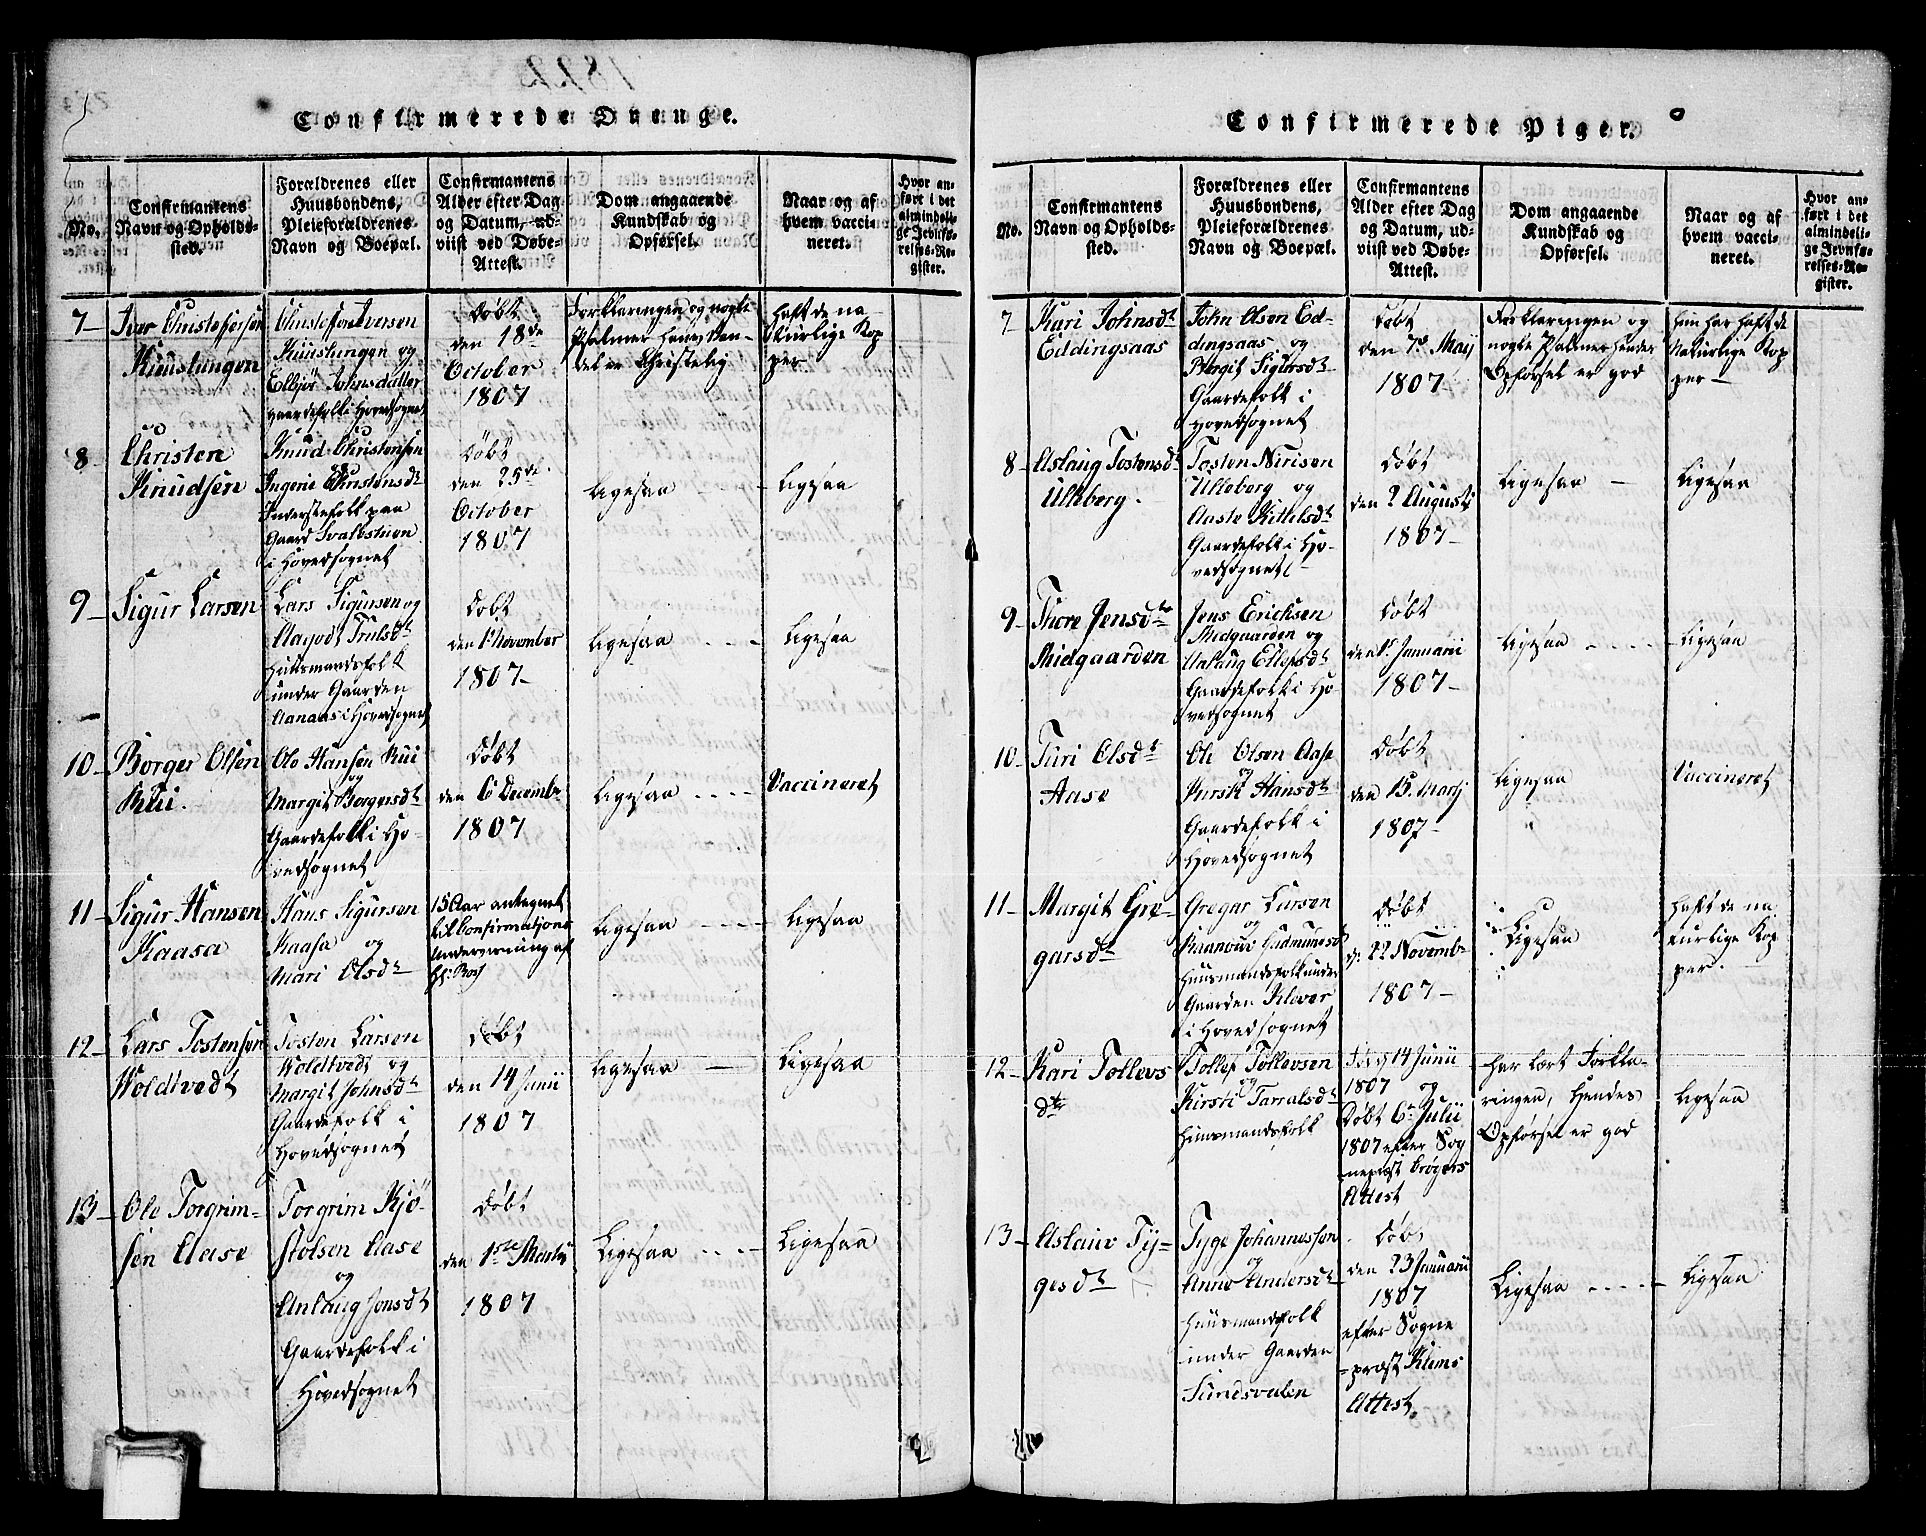 Confirmerede Drenge.
No.
Confirmantens
Navn og Opholds-
sted.
Forældrenes eller
Huusbondens,
Pleieforældrenes
Navn og Boepæl.
Confirmantens
Alder efter Dag
og Datum, ud-
viist ved Døbe-
Attest.
Dom angaaende
Kundskab og
Opførsel.
Naar og af
hvem vacci-
neret.
Hvor an-
ført i det
almindeli-
ge Jevnfø-
relses-Re-
gister.
7 Iver Christofersen
Kuuslungen
Christofer Iversen
Kuuslungen og
Johnsdatter
Gaardefolk i Hovedsognet
Døbt
den 18de
October
1807
Forklaringen og nogle
Psalmer
er Christelig
haft de na
turlige Kop
per
8 Christen
Knudsen
Knud Christensen
Ingerie Christensdt
Inderstefolk paa
Gaard
i Hovedsognet
Døbt
den 25de
October
1807
Ligesaa
Ligesaa
9 Sigur Larsen
Lars Sigursen og
Trulsdt
Huusmandsfolk
under Gaarden
i Hovedsognet
Døbt
den 1 November
1807
Ligesaa
Ligesaa
10 Borger Olsen
Rui.
Ole Hansen Rui
og
Margit Borgersdt
Gaardefolk i Ho-
vedsognet
Døbt
den 6 Decembr
1807
Ligesaa
Vaccineret
11 Sigur Hansen
Kaasa
Hans Sigursen
Kaasa og
Mari Olsdt
15 Aar antegnet
til Confirmations
Underviisning af
Ligesaa
Ligesaa
12 Lars Tostensen
Woldtvedt
Tosten Larsen
Woldtvedt og
Margit Johnsdt
Gaardefolk i
Hovedsognet
Døbt
den 14 Junii
1807
Ligesaa
Ligesaa
13 Ole Torgrim-
sen Aase
Torgrim Kjø-
stolsen Aase
og
Anlaug Jonsdt
Gaardefolk i
Hovedsognet
Døbt
den 1ste Martii
1807
Ligesaa
Ligesaa
Confirmerede Piger.
No.
Confirmantens
Navn og Opholds-
sted.
Forældrenes eller
Huusbondens,
Pleieforældrenes
Navn og Boepæl.
Confirmantens
Alder efter Dag
og Datum, ud-
viist ved Døbe-
Attest.
Dom angaaende
Kundskab og
Opførsel.
Naar og af
hvem vacci-
neret.
Hvor an-
ført i det
almindeli-
ge Jevnfø-
relses-Re-
gister.
7 Kari Johnsdt
Eddingsaas
John Olsen Ed-
dingsaas og
Birgit Sigursdt
Gaardefolk i
Hovedsognet
Døbt
den 7de Maij
1807
Forklaringen og
nogle Psalmer hendes
Opførsel er god
hun har haft de
Naturlige Kop
per
8 Aslaug Tostensdt
Ulleberg.
Tosten Nirisen
Ulleberg og
Aaste Kittelsdt
Gaardefolk i Ho-
vedsognet
Døbt
den 2 Augusti
1807
Ligesaa
Ligesaa
9 Thore Jensdtr
Midgaarden
Jens Ericksen
Midgaarden og
Aslaug Ellefsdt
Gaardefolk i Ho-
vedsognet
Døbt
den 1 Januarii
1807
Ligesaa
Ligesaa
10 Turi Olsdt
Aase
Ole Olsen Aase
og
Kirsti Hansdt
Gaardefolk i
Hovedsognet
Døbt
den 15. Martj
1807
Ligesaa
Vaccineret
11 Margit Gre-
garsdt
Gregar Larsen
og
Rannow Gudmunsdt
Huusmandsfolk under
Gaarden Klever
i Hovedsognet
Døbt
d: 22 Novembr
1807
Ligesaa
haft de na
turlige Kop
per.
12 Kari Tollevs
dtr
Tollef Tollevsen
og
Kirsti Tarralsdt
Huusmandsfolk
14 Junii
1807 og
Døbt 6te Julii
1807 efter Sog
nepræst Crøgers
Attest
har lært Forkla-
ringen, Hendes
Opførsel er god
Ligesaa
13 Aslaug Ty-
gesdt
Tyge Johannessen
og
Anne Andersdt
Huusmandsfolk
under Gaarden
Sundsvalen
Døbt
den 23 Januarii
1807
efter Sogne
præst Klems
Attest.
Ligesaa
Ligesaa